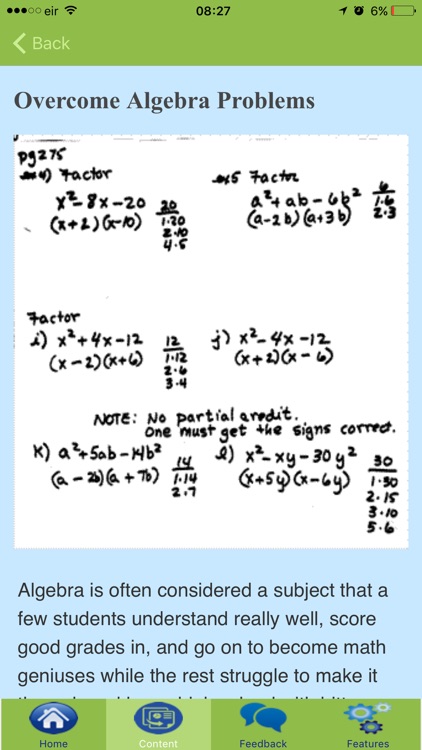 eir 08:27 6%
Back
Overcome Algebra Problems
pg275
4) Factor
x²-8x-20
(x+2)(x-10)
20
1·20
2·10
4·5
ex5 Factor
a²+ab-6b²
(a-2b)(a+3b)
6
1·6
2·3
Factor
i) x²+4x-12
(x-2)(x+6)
12
1·12
2·6
3·4
j) x²-4x-12
(x+2)(x-6)
NOTE: No partial credit.
One must get the signs correct.
k) a²+5ab-14b²
(a-2b)(a+7b)
14
1·14
2·7
l) x²-xy-30y²
(x+5y)(x-6y)
30
1·30
2·15
3·10
5·6
Algebra is often considered a subject that a
few students understand really well, score
good grades in, and go on to become math
geniuses while the rest struggle to make it
Home Content Feedback Features